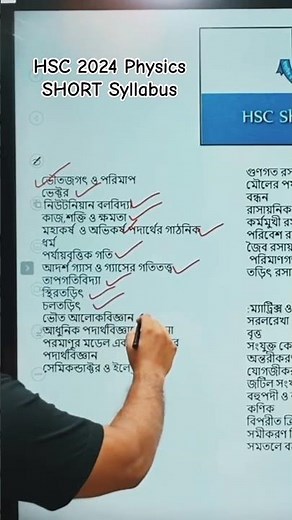 HSC 2024 Physics
SHORT Syllabus
HSC
ভৌতজগৎ ও পরিমাপ
ভেক্টর
নিউটনিয়ান বলবিদ্যা
কাজ,শক্তি ও ক্ষমতা
মহাকর্ষ ও অভিকর্ষ পদার্থের গাঠনিক
ধর্ম
পর্যায়বৃত্তিক গতি
আদর্শ গ্যাস ও গ্যাসের গতিতত্ত্ব
তাপগতিবিদ্যা
স্থিরতড়িৎ
চলতড়িৎ
ভৌত আলোকবিজ্ঞান
আধুনিক
পরমাণুর মডেল
পদার্থবিজ্ঞান
সেমিকন্ডাক্টর ও
গুণগত
মৌলের
বন্ধন
কর্মমুখী
পরিবেশ
জৈব
তড়িৎ
:ম্যাট্রিক্স
সরলরেখা
বৃত্ত
সংযুক্ত
জটিল
বহুপদী
কণিক
বিপরীত
সমীকরণ
সমতলে